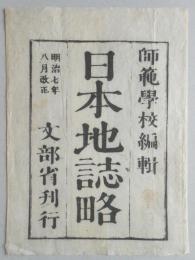 師範學校編輯
日本地誌略
明治七年
八月改正
文部省刊行